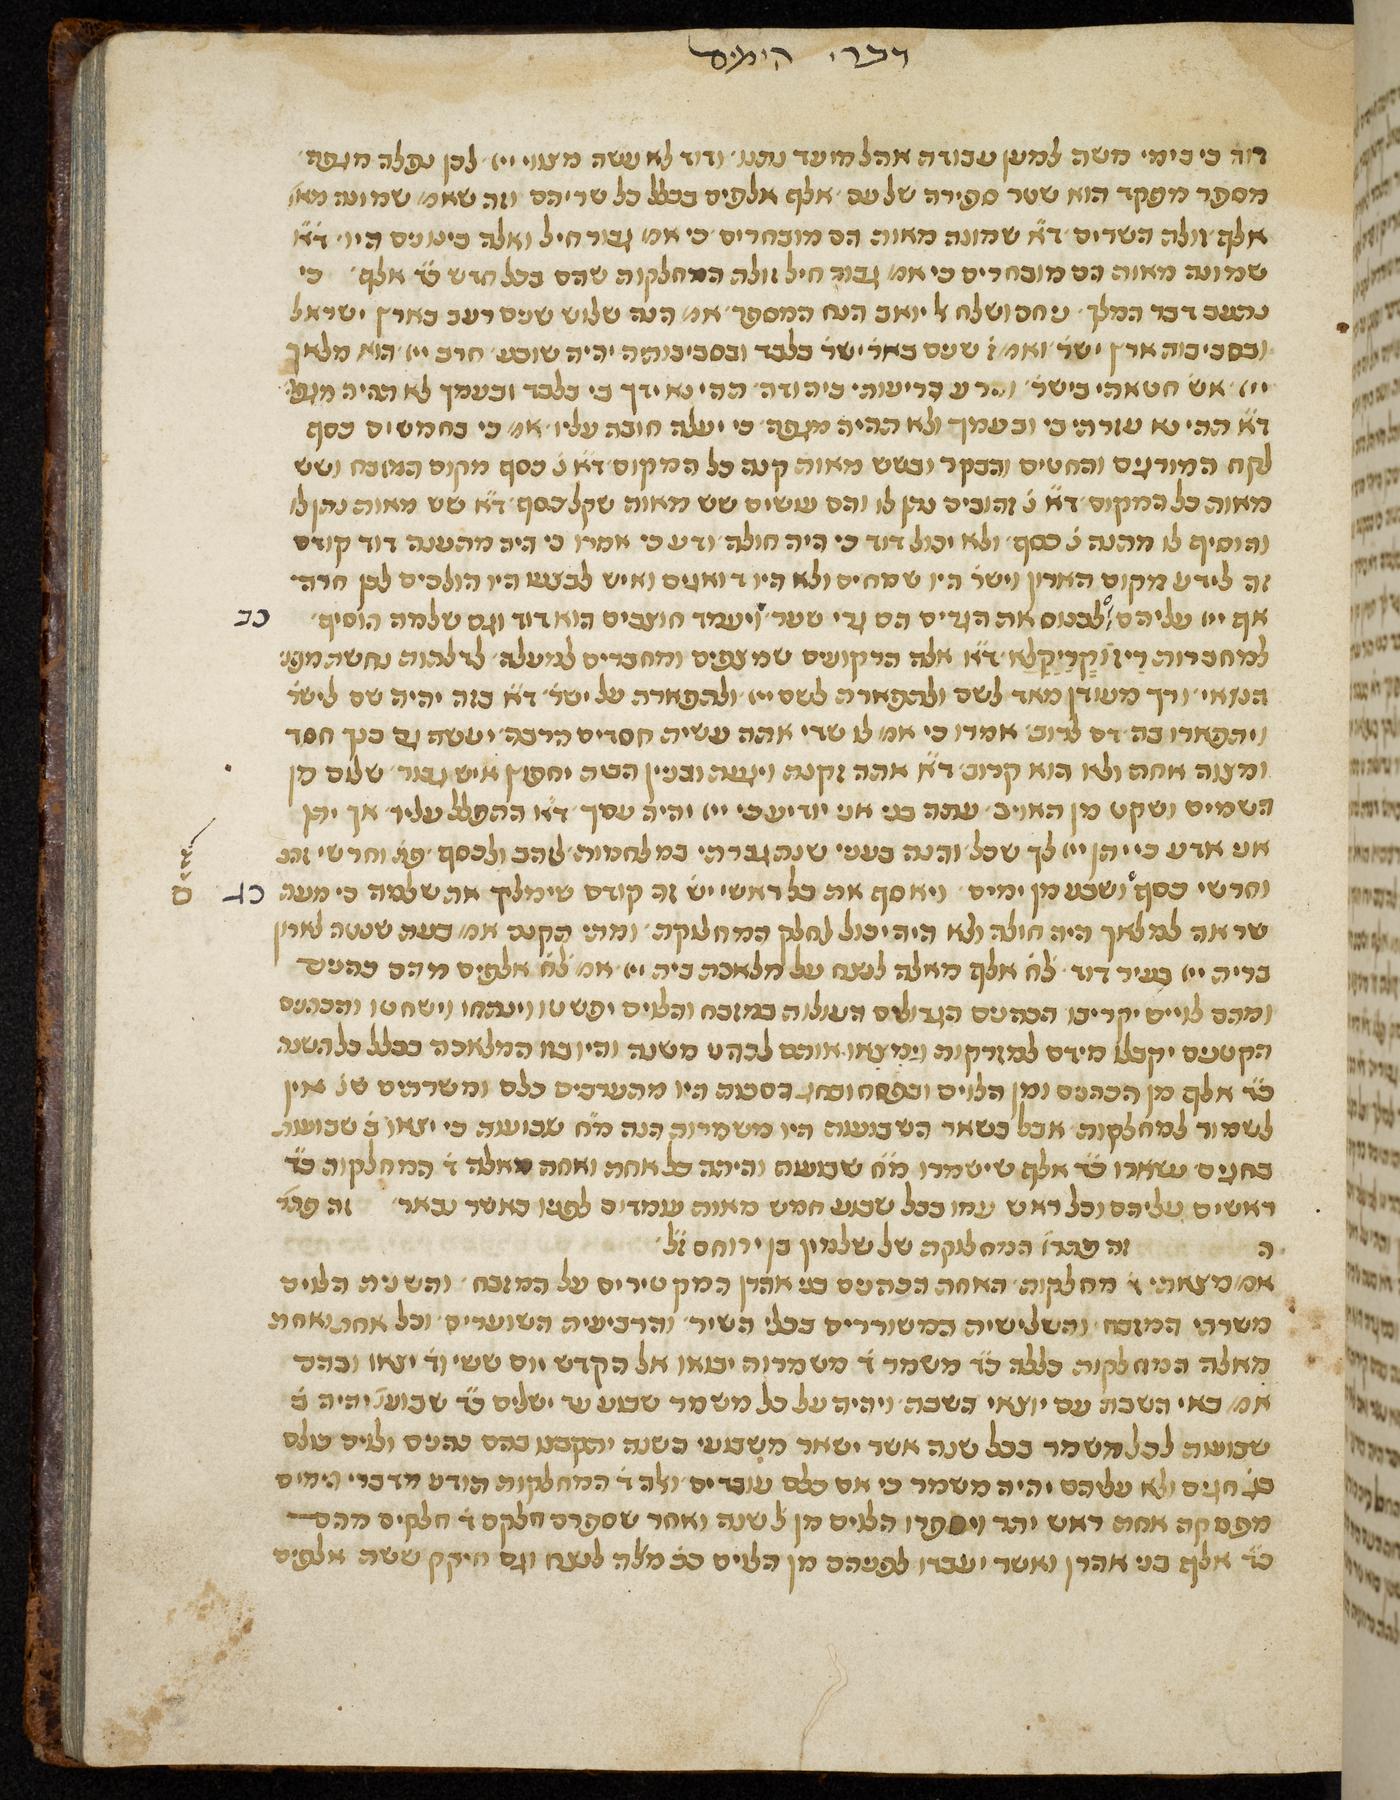 דברי הימים
דוד כי בימי משה למען עבודה אהל מועד נתנו ודוד לא עשה מצוי ייי לכן נפלה מגפה
מספר מפקד הוא שטר ספירה של עם אלף אלפים בכלל כל שריהם וזה שאמ׳ שמונה מאו׳
אלף זולה השרים ד״א שמונה מאות הם מובחרים כי אמ׳ גבור חיל ואלה בינונים היו ד״א
שמונה מאות הם מובחרים כי אמ׳ גבור חיל זולה המחלקות שהם בכל חדש כ״ד אלף כי
נתעב דבר המלך ניחם ושלח ל יואב הנה המספר אמ׳ הנה שלוש שנים רעב בארץ ישראל
ובסביבות ארץ ישר׳ ואמ׳ ז שנים באר׳ ישר׳ בלבד ובסביבותיה יהיה שובע חרב ייי הוא מלאך
ייי אש חטאתי בישר׳ והרע הריעותי ביהודה תהי נא ידך בי בלבד ובעמך לא תהיה מגפ׳
ד״א תהי נא עזרתי בי ובעמך ולא תהיה מגפה כי יעלה חובה עליו אמ׳ כי בחמשים כסף
לקח המורגים והחטים והבקר ובשש מאות קנה כל המקום ד״א נ׳ כסף מקום המזבח ושש
מאות כל המקום ד״א נ׳ זהובים נתן לו והם עושים שש מאות שקל כסף ד״א שש מאות נתן לו
והוסיף לו מתנה נ׳ כסף ולא יכול דוד כי היה חולה ודע כי אמרו כי היה מתענה דוד קודם
זה לידע מקום הארון וישר׳ היו שמחים ולא היו דואגים ואיש לבצעו היו הולכים לכן חרה
אף ייי עליהם לכנוס את הגרים הם גרי שער ויעמד חוצבים הוא דוד וגם שלמה הוסיף
כב
למחברות ריזוקריקלא ד״א אלה הרקועים שמצפים ומחברים למעלה לדלתות נחשת מפני
הנזאי ורך מעודן מאד לשם ולתפארת לשם ייי ולתפארה על ישר׳ ד״א בזה יהיה שם לישר׳
ויתפארו בה דם לרוב אמרו כי אמ׳ לו שרי אתה עשית חסדים הרבה יעשה גם בנך חסד
ומצוה אחת ולא הוא קרוב ד״א אתה זקנת ויגעת ובנין הבית יחפוץ איש גבור שלום מן
השמים ושקט מן האויב עתה בני אני יודיע כי ייי יהיה עמך ד״א ההתפלל עליו אך יתן
אני אדע כי יתן ייי לך שכל והנה בעניי שנתגברתי במלחמות לזהב ולכסף פת׳ וחרשי זהב
וחרשי כסף ושבע מן ימים ויאסף את כל ראשי יש׳ זה קודם שימליך את שלמה כי מעת
כד
ם
שראה למלאך היה חולה ולא היה יכול לחלק המחלוקת ומתי הקנה אמ׳ בעת שנטה לארון
ברית ייי בעיר דוד ל״ח אלף מאלה לנצח על מלאכת בית ייי אמ׳ ל״ח אלפים מהם כהנים
ומהם לויים יקריבו הכהנים הגדולים העולות במזבח והלוים יפשטו וינתחו וישחטו והכהנים
הקטנים יקבלו מידם למזרקות וימצאו אותם לכהני משנה והיו בזו המלאכה בכלל כל השנה
כ״ד אלף מן הכהנים ומן הלוים ובפסח ובחג בסכות היו מתערבים כלם ומשרתים שלא אין
לשמור למחלקות אבל בשאר השבועות היו משמרות הנה מ״ח שבועות כי יצאו ב׳ שבועות
בחגים נשארו כ״ד אלף שישמרו מ״ח שבועות והיתה כל אחת ואחת מאלה ד׳ המחלקות כ״ד
ראשים עליהם וכל ראש עמו בכל שבוע חמש מאות עומדים לפניו כאשר נבאר זה פתר׳
ה זה פתרו׳ המחלוקת של שלמון בן ירוחם ז״ל
אמ׳ מצאתי ד׳ מחלקות האחת הכהנים בני אהרן המקטירים על המזבח והשנית הלוים
משרתי המזבח והשלישית המשוררים בכלי השיר והרביעית השוערים וכל אחת ואחת
מאלה המחלקות כללה כ״ד משמר ד׳ משמרות יבואו אל הקדש יום ששי וד׳ יצאו ובהם
אמ׳ באי השבת עם יוצאי השבת ויהיה על כל משמר שבוע עד ישלים כ״ד שבוע ויהיה ב׳
שבועות לכל משמר בכל שנה אשר ישאר משבועי בשנה יתקבצו בהם כהנים ולוים כולם
בג׳ חגים ולא עליהם יהיה משמר כי אם כלם עובדים ולה ד׳ המחלקות תודע מדברי הימים
מפסקה אחת ראש יתר ויספרו הלוים מן ל׳ שנה ואחר שספרם חלקם ד׳ חלקים מהם
כ״ד אלף בני אהרן ואשר יעבדו לפניהם מן הלוים ככ׳ מאלה לנצח וגם חיקק ששת אלפים